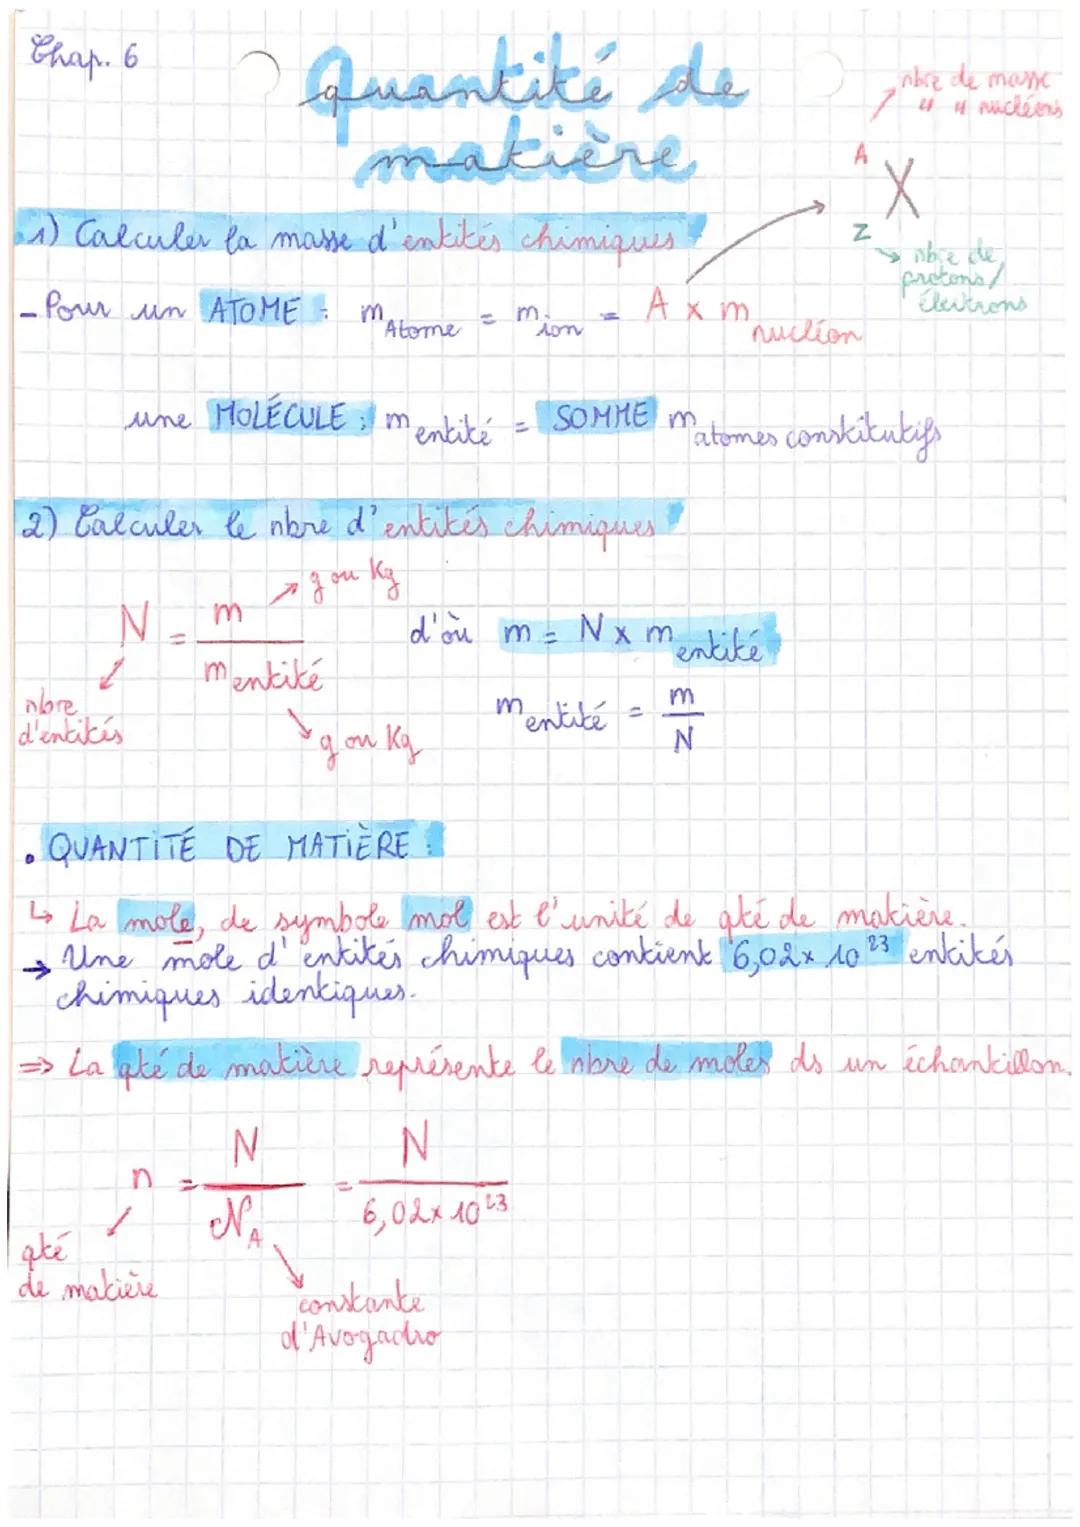 Chap. 6
Quantité de
matière
nbre de masse
" " nucléons
A
X
Z
nbre de
protons /
électrons
1) Calculer la masse d'entités chimiques
- Pour un ATOME : m Atome = m ion = A x m nucléon
une MOLÉCULE : m entité = SOMME m atomes constitutifs
2) Calculer le nbre d'entités chimiques
N = m / m entité
g ou Kg
nbre
d'entités
g ou Kg
d'où m = N x m entité
m entité = m / N
• QUANTITÉ DE MATIÈRE :
↳ La mole, de symbole mol est l'unité de qté de matière.
→ Une mole d'entités chimiques contient 6,02 x 10²³ entités
chimiques identiques.
=> La qté de matière représente le nbre de moles ds un échantillon.
n = N / N_A = N / 6,02 x 10²³
qté
de matière
constante
d'Avogadro